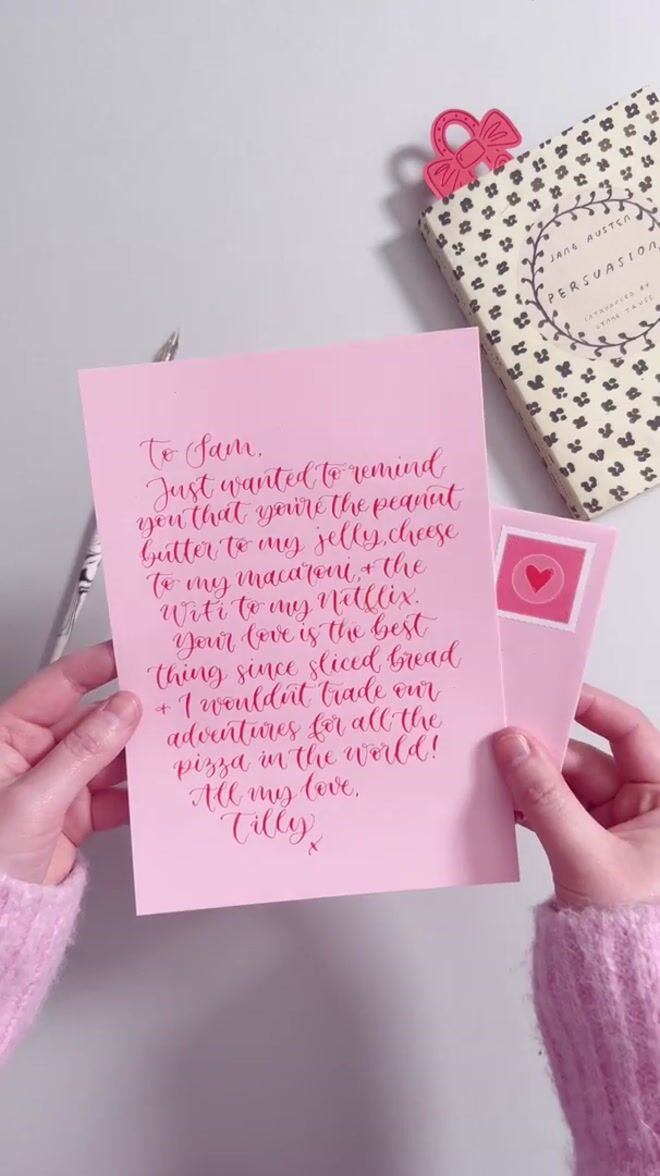 JANE AUSTEN
PERSUASION
INTRODUCED BY
LYNNE TRUSS
To Sam,
Just wanted to remind
you that you're the peanut
butter to my jelly, cheese
to my macaroni, + the
WiFi to my Netflix.
Your love is the best
thing since sliced bread
+ I wouldn't trade our
adventures for all the
pizza in the world!
All my love,
Tilly
x